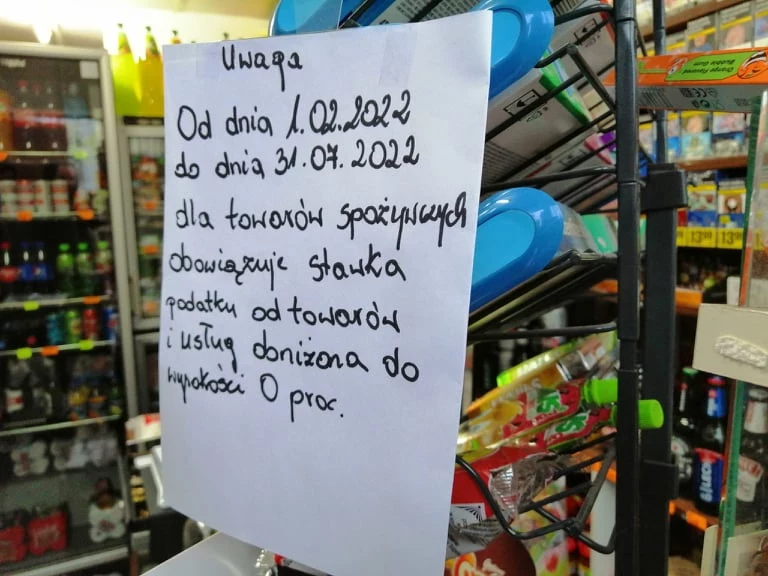 Uwaga
Od dnia 1.02.2022
do dnia 31.07.2022
dla towarów spożywczych
obowiązuje stawka
podatku od towarów
i usług doniżona do
wysokości 0 proc.
Orange Flavored
Bubble Gum